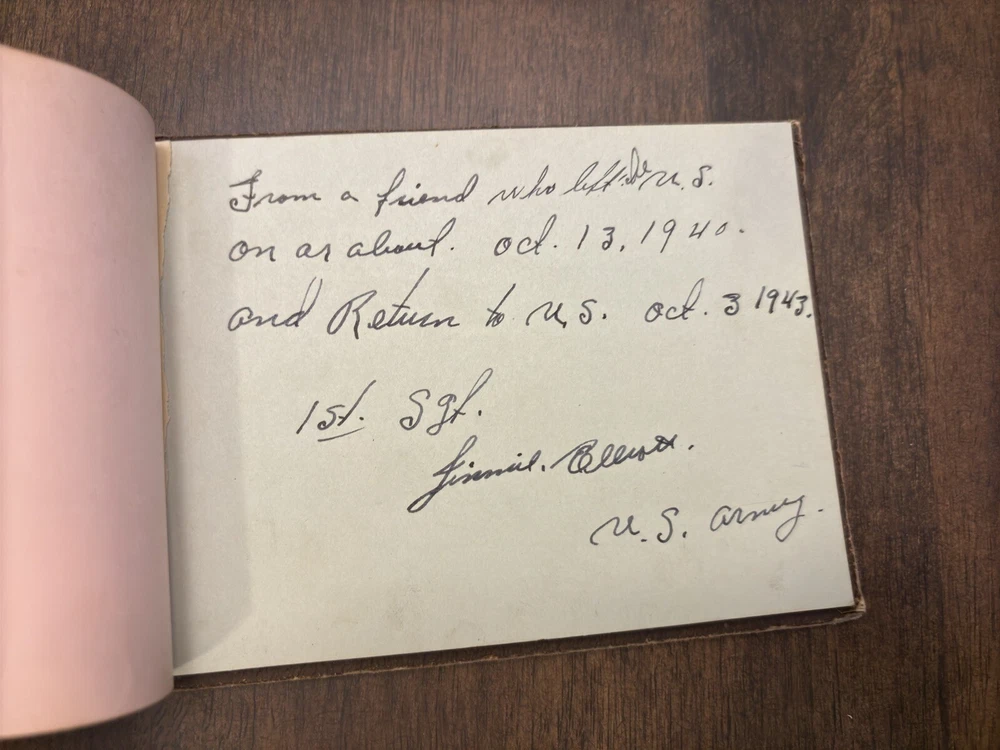 From a friend who left the U.S.
on or about. oct. 13, 1940.
and Return to U.S. oct. 3 1943.
1st. Sgt.
Jimmie. Elliott.
U.S. army.